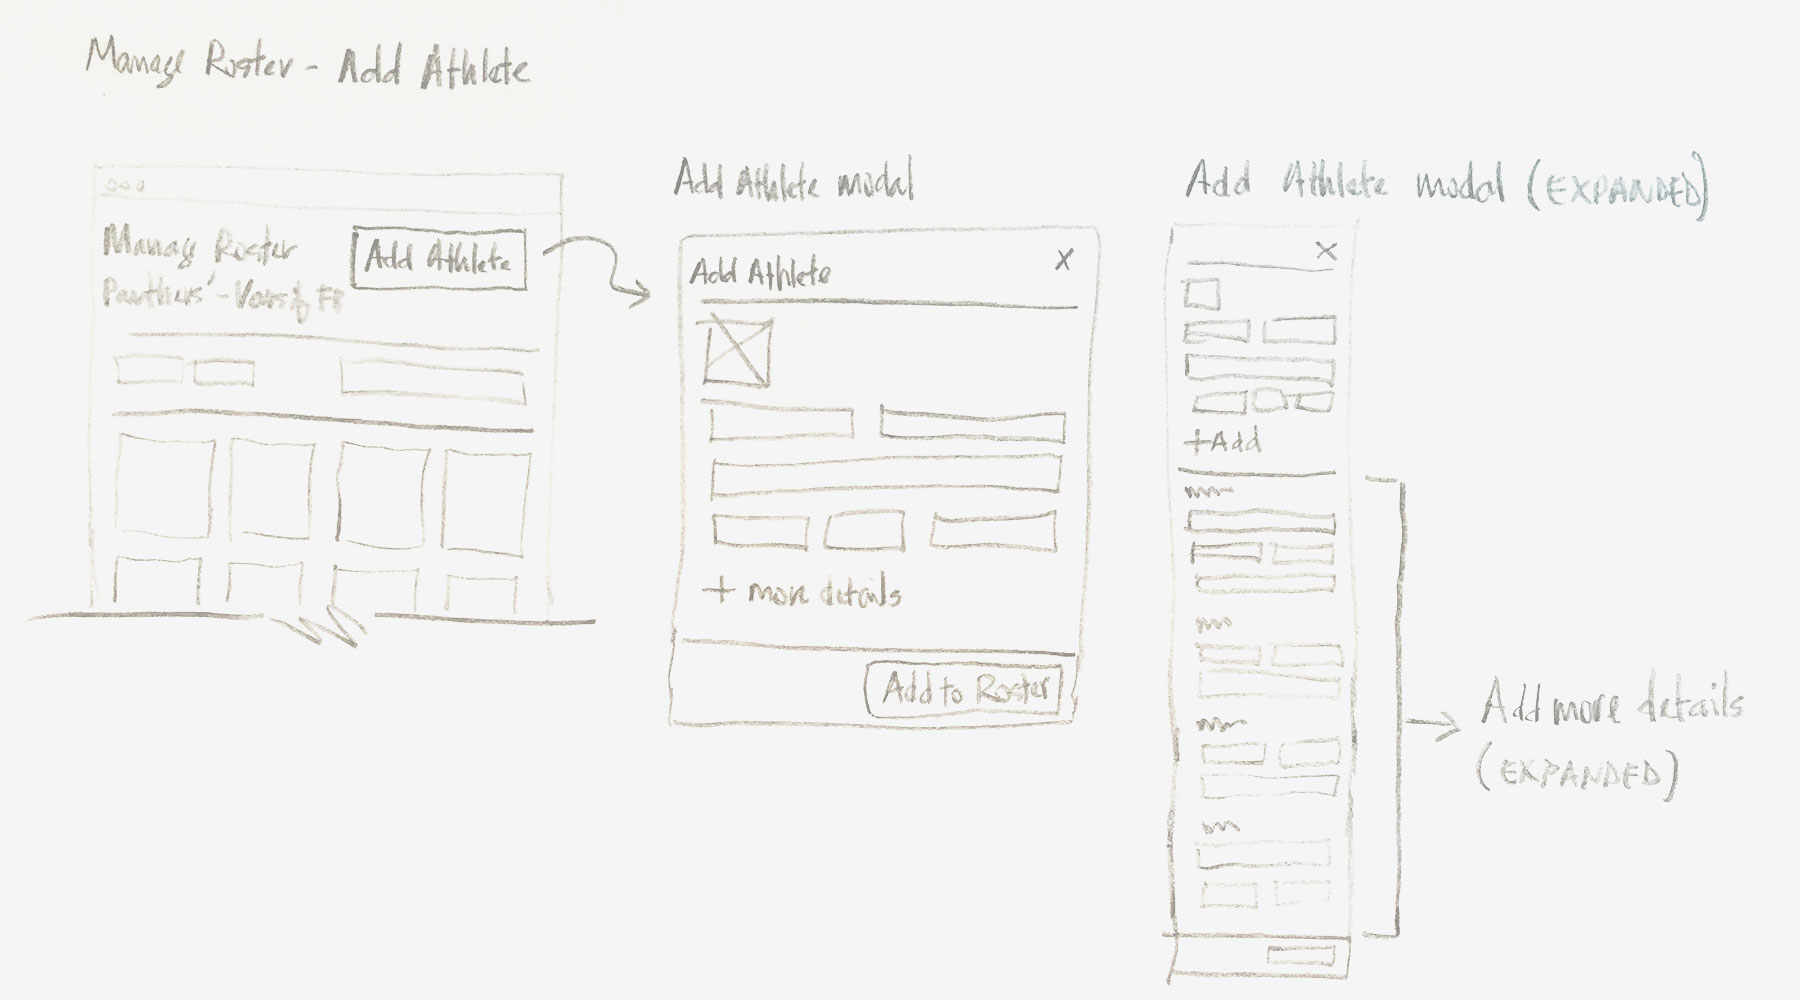 Manage Roster - Add Athlete
Manage Roster
Panthers' - Varsity FB
Add Athlete
Add Athlete modal
Add Athlete X
+ more details
Add to Roster
Add Athlete modal (EXPANDED)
X
+Add
Add more details
(EXPANDED)